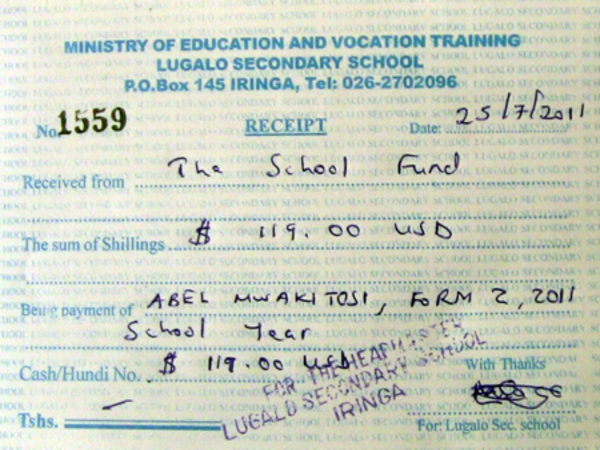 MINISTRY OF EDUCATION AND VOCATION TRAINING
LUGALO SECONDARY SCHOOL
P.O.Box 145 IRINGA, Tel: 026-2702096
No. 1559 RECEIPT Date: 25/7/2011
Received from The School Fund
The sum of Shillings $ 119.00 USD
Being payment of ABEL MWAKITOSI, FORM 2, 2011
School Year
Cash/Hundi No. $ 119.00 USD With Thanks
FOR THE HEADMASTER
LUGALO SECONDARY SCHOOL
IRINGA
Tshs. For: Lugalo Sec. school